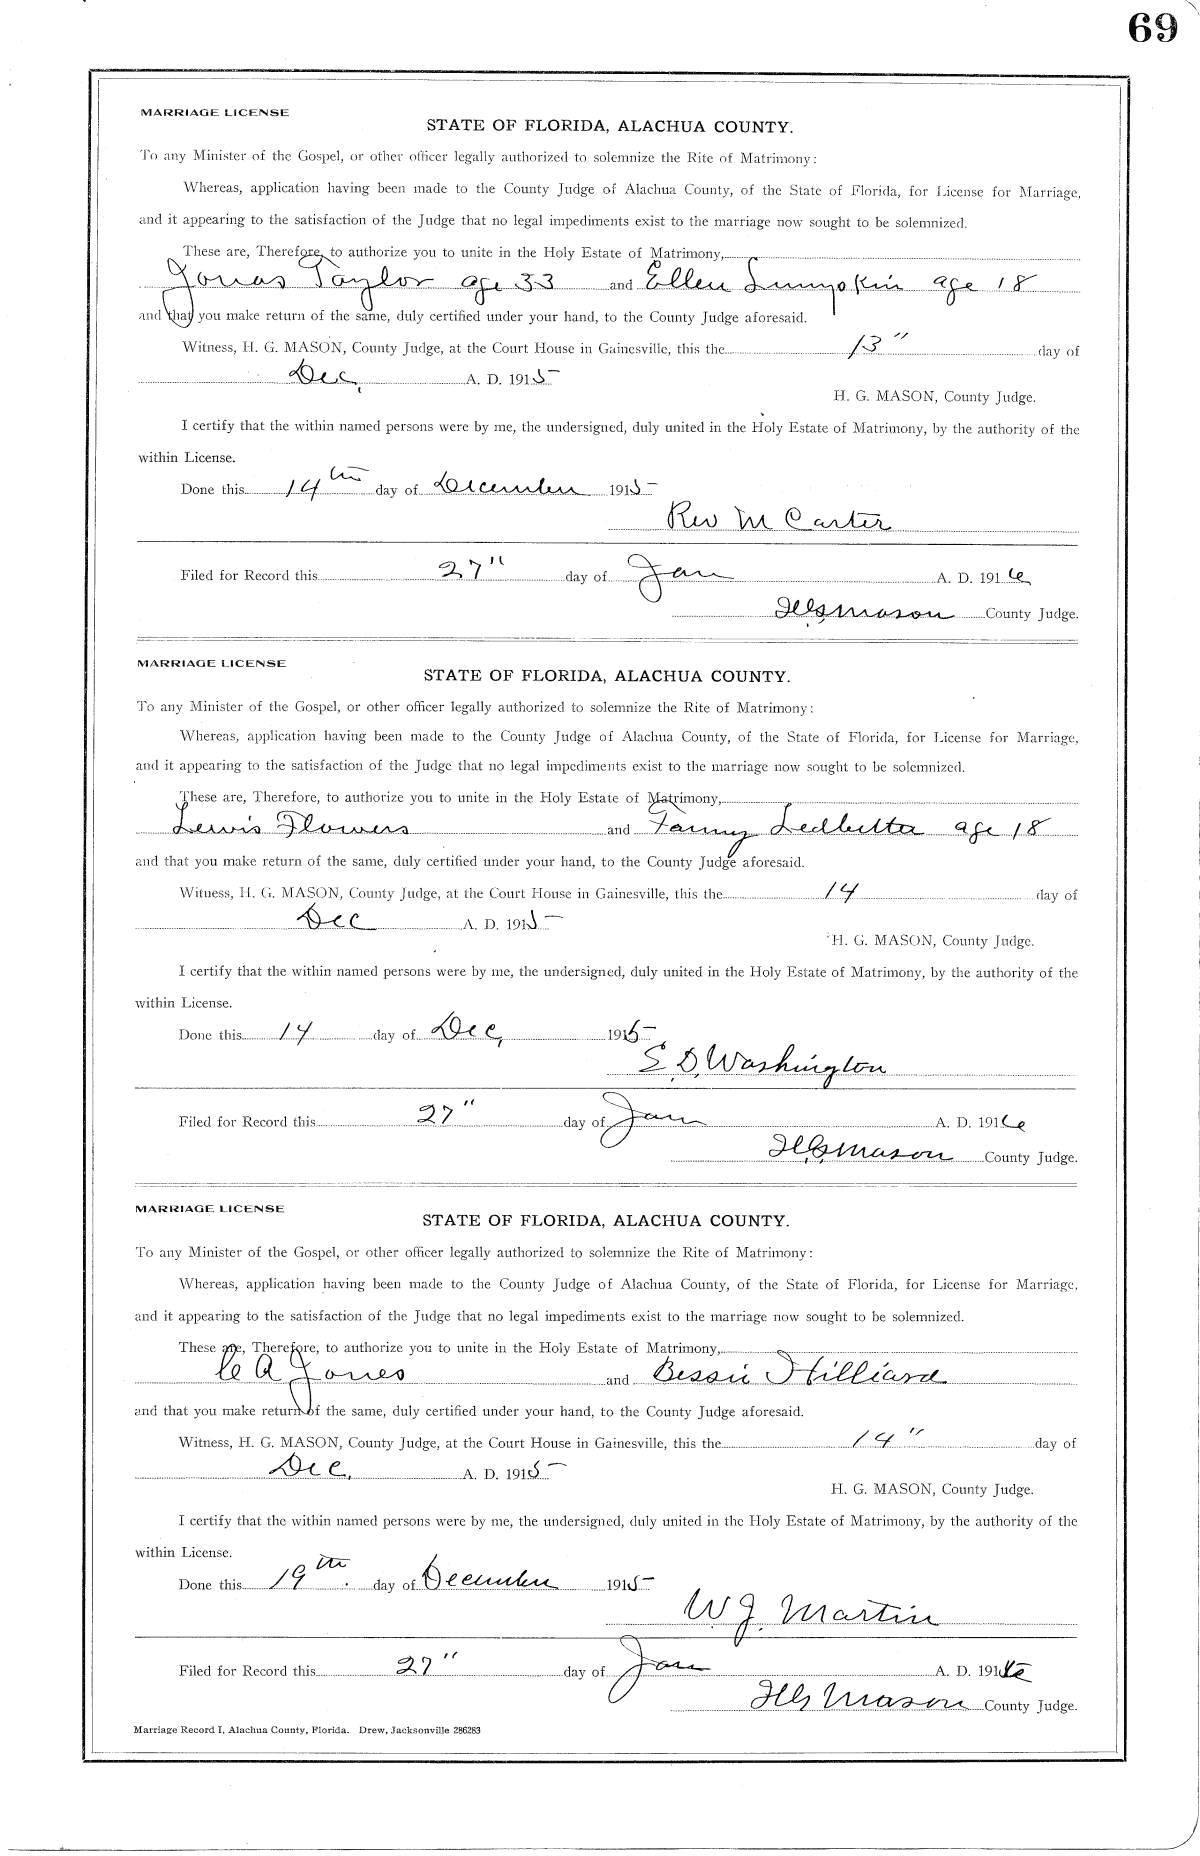 69
MARRIAGE LICENSE
STATE OF FLORIDA, ALACHUA COUNTY.
To any Minister of the Gospel, or other officer legally authorized to solemnize the Rite of Matrimony:
Whereas, application having been made to the County Judge of Alachua County, of the State of Florida, for License for Marriage,
and it appearing to the satisfaction of the Judge that no legal impediments exist to the marriage now sought to be solemnized.
These are, Therefore, to authorize you to unite in the Holy Estate of Matrimony,
Jonas Taylor age 33 and Ellen Lumpkin age 18
and that you make return of the same, duly certified under your hand, to the County Judge aforesaid.
Witness, H. G. MASON, County Judge, at the Court House in Gainesville, this the 13" day of
Dec, A. D. 1915
H. G. MASON, County Judge.
I certify that the within named persons were by me, the undersigned, duly united in the Holy Estate of Matrimony, by the authority of the
within License.
Done this 14th day of December 1915
Rev M Carter
Filed for Record this 27" day of Jan A. D. 1916
H.G. Mason County Judge.
MARRIAGE LICENSE
STATE OF FLORIDA, ALACHUA COUNTY.
To any Minister of the Gospel, or other officer legally authorized to solemnize the Rite of Matrimony:
Whereas, application having been made to the County Judge of Alachua County, of the State of Florida, for License for Marriage,
and it appearing to the satisfaction of the Judge that no legal impediments exist to the marriage now sought to be solemnized.
These are, Therefore, to authorize you to unite in the Holy Estate of Matrimony,
Lewis Flowers and Fanny Ledbetter age 18
and that you make return of the same, duly certified under your hand, to the County Judge aforesaid.
Witness, H. G. MASON, County Judge, at the Court House in Gainesville, this the 14 day of
Dec A. D. 1915
H. G. MASON, County Judge.
I certify that the within named persons were by me, the undersigned, duly united in the Holy Estate of Matrimony, by the authority of the
within License.
Done this 14 day of Dec, 1915
E. D. Washington
Filed for Record this 27" day of Jan A. D. 1916
H.G. Mason County Judge.
MARRIAGE LICENSE
STATE OF FLORIDA, ALACHUA COUNTY.
To any Minister of the Gospel, or other officer legally authorized to solemnize the Rite of Matrimony:
Whereas, application having been made to the County Judge of Alachua County, of the State of Florida, for License for Marriage,
and it appearing to the satisfaction of the Judge that no legal impediments exist to the marriage now sought to be solemnized.
These are, Therefore, to authorize you to unite in the Holy Estate of Matrimony,
C A Jones and Bessie Hilliard
and that you make return of the same, duly certified under your hand, to the County Judge aforesaid.
Witness, H. G. MASON, County Judge, at the Court House in Gainesville, this the 14" day of
Dec, A. D. 1915
H. G. MASON, County Judge.
I certify that the within named persons were by me, the undersigned, duly united in the Holy Estate of Matrimony, by the authority of the
within License.
Done this 19th day of December 1915
W. J. Martin
Filed for Record this 27" day of Jan A. D. 1916
H G Mason County Judge.
Marriage Record I, Alachua County, Florida. Drew, Jacksonville 286283